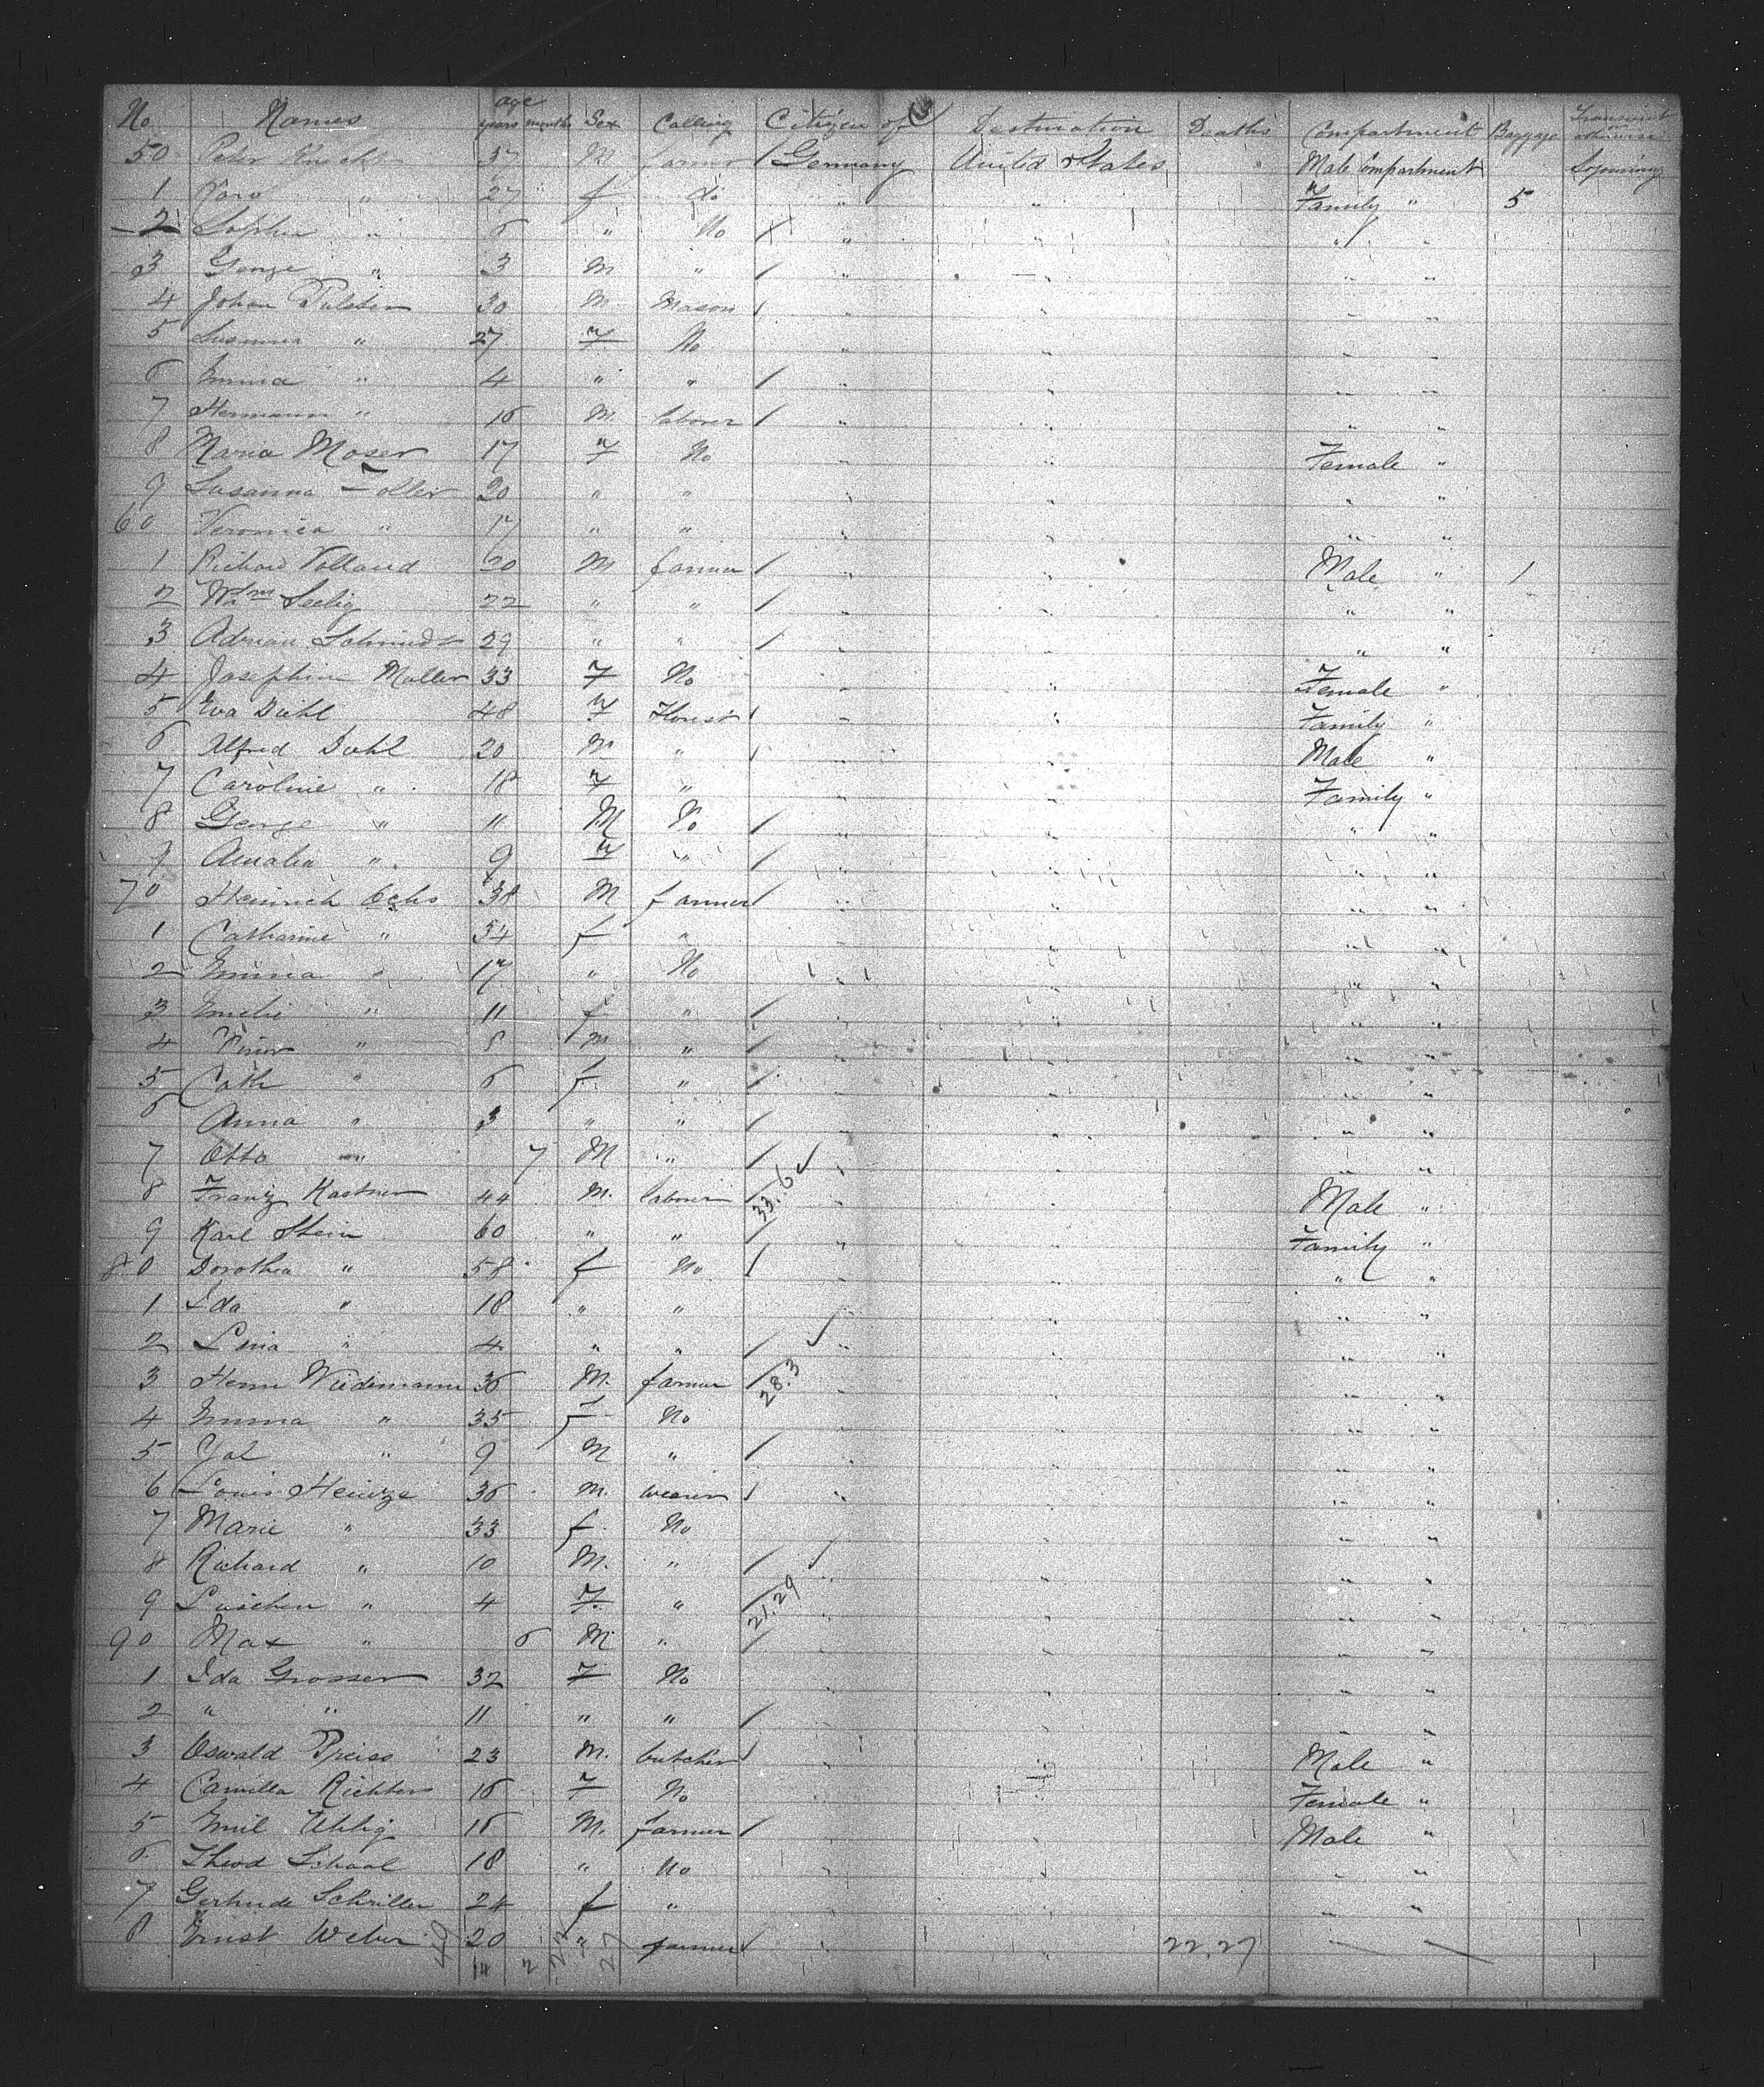 (3)
No Names age years months Sex Calling Citizen of Destination Deaths Compartment Baggage Transient
50 Peter 37 M farmer / Germany United States " Male Compartment Sojourning
1 " 27 f do " " Family " 5
2 Sophia " 6 " No / " " " "
3 George " 3 M " / " " " "
4 Johan 30 M. Mason / " " " "
5 Susanna " 27 F No " " " "
6 Emma " 4 " " / " " " "
7 Hermann " 16 M. laborer / " " " "
8 Maria Moser 17 F No " " Female "
9 Susanna 20 " " " " " "
60 Veronica " 17 " " " " " "
1 Richard Volland 20 M farmer / " " Male " 1
2 Wm Seelig 22 " " / " " " "
3 Adrian Schmidt 29 " " / " " " "
4 Josephine Muller 33 F No " " Female "
5 Eva Dahl 48 F Florest / " " Family "
6 Alfred Dahl 20 M " / " " Male "
7 Caroline " 18 F " " " Family "
8 George " 11 M No / " " " "
9 Amalia " 9 F " / " " " "
70 Heinrich Ochs 38 M farmer / " " " "
1 Catharine " 34 f " " " " "
2 Emma " 17 " No " " " "
3 Emelie " 11 f " / " " " "
4 " 8 M " / " " " "
5 Cath " 6 f " / " " " "
6 Anna " 3 " " / " " " "
7 Otto " 7 M " / " " " "
8 Franz Kastner 44 M. laborer / 33.6 ✓ " " Male "
9 Karl Stein 60 " " / " " Family "
80 Dorothea " 58 f No / " " " "
1 Ida " 18 " " " " " "
2 Lina " 4 " " / ✓ " " " "
3 Herm Wiedemann 36 M. farmer / 28.3 " " " "
4 Emma " 35 F No " " " "
5 " 9 M " / " " " "
6 Louis Heinze 36 M. weaver / " " " "
7 Marie " 33 f No " " " "
8 Richard " 10 M. " / " " " "
9 Luischen " 4 F. " / 21.29 " " " "
90 Max " 6 M " / " " " "
1 Ida Grosser 32 F No " " " "
2 " " 11 " " / " " " "
3 Oswald Preiss 23 M. butcher / " " Male "
4 Camilla Richter 16 F No " " Female "
5 Emil Uhlig 16 M. farmer / " " Male "
6 Theod Schaal 18 " No " " " "
7 Gertrude Schriller 24 f " " " " "
8 Ernst Weber 20 " farmer / " " 22.27